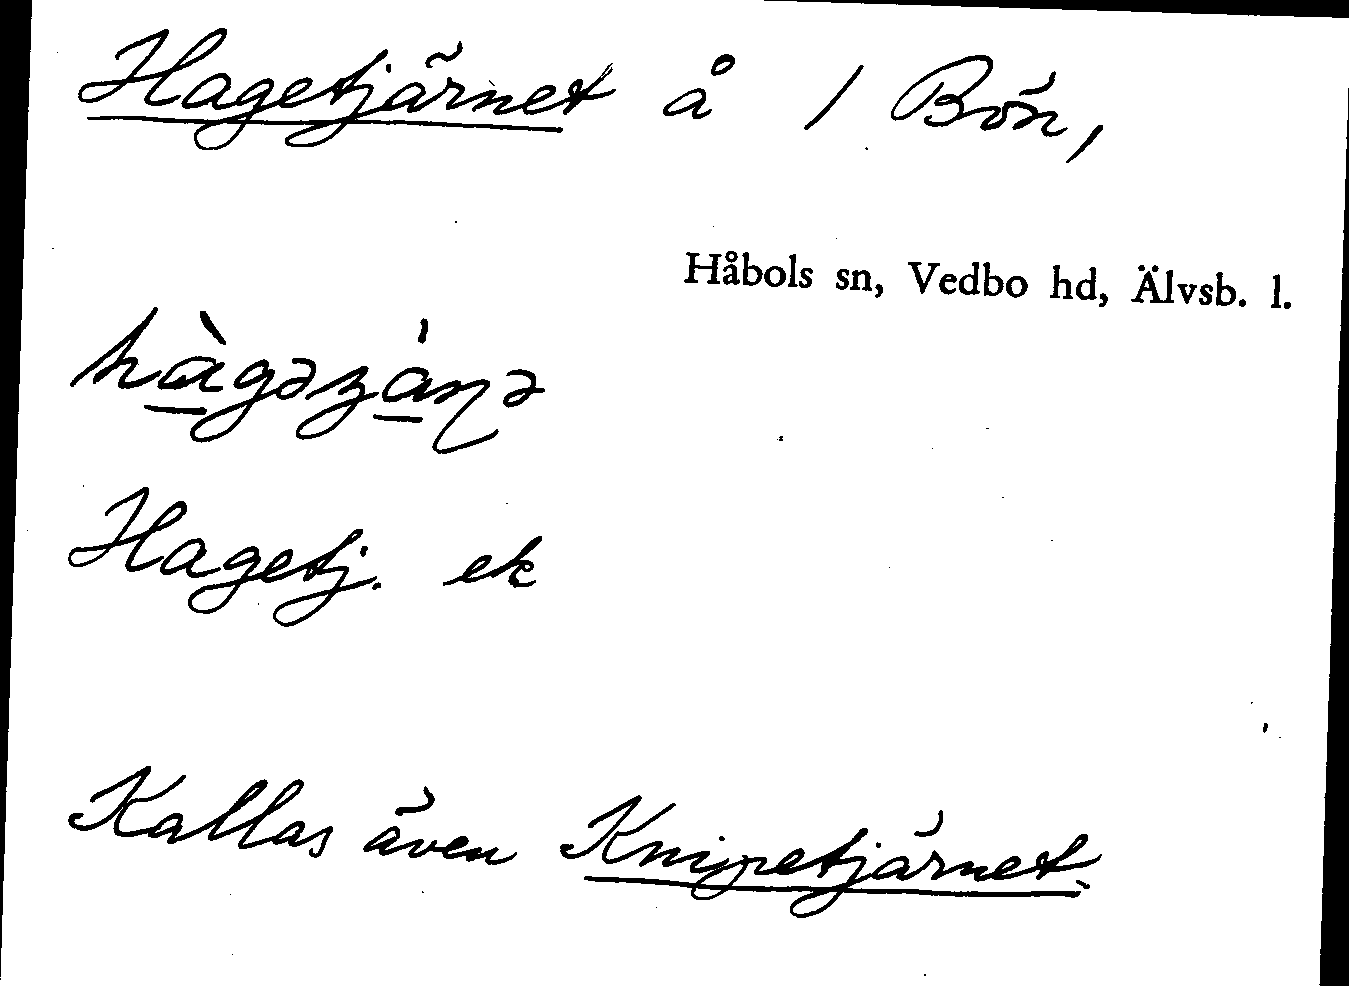 Hagetjärnet å 1 Bön,
Håbols sn, Vedbo hd, Älvsb. l.
hàgəʒáɳə
Hagetj. ek
Kallas även Knipetjärnet.